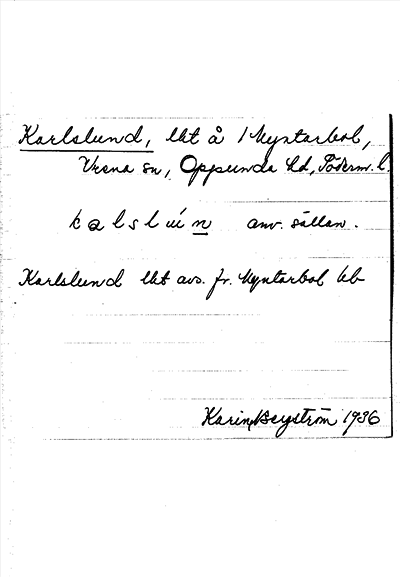 Karlslund, lht å 1 Myntarbol,
Vrena sn, Oppunda hd, Söderm. l.
kalslún anv. sällan.
Karlslund lht avs. fr. Myntarbol kb
Karin Beyström 1936